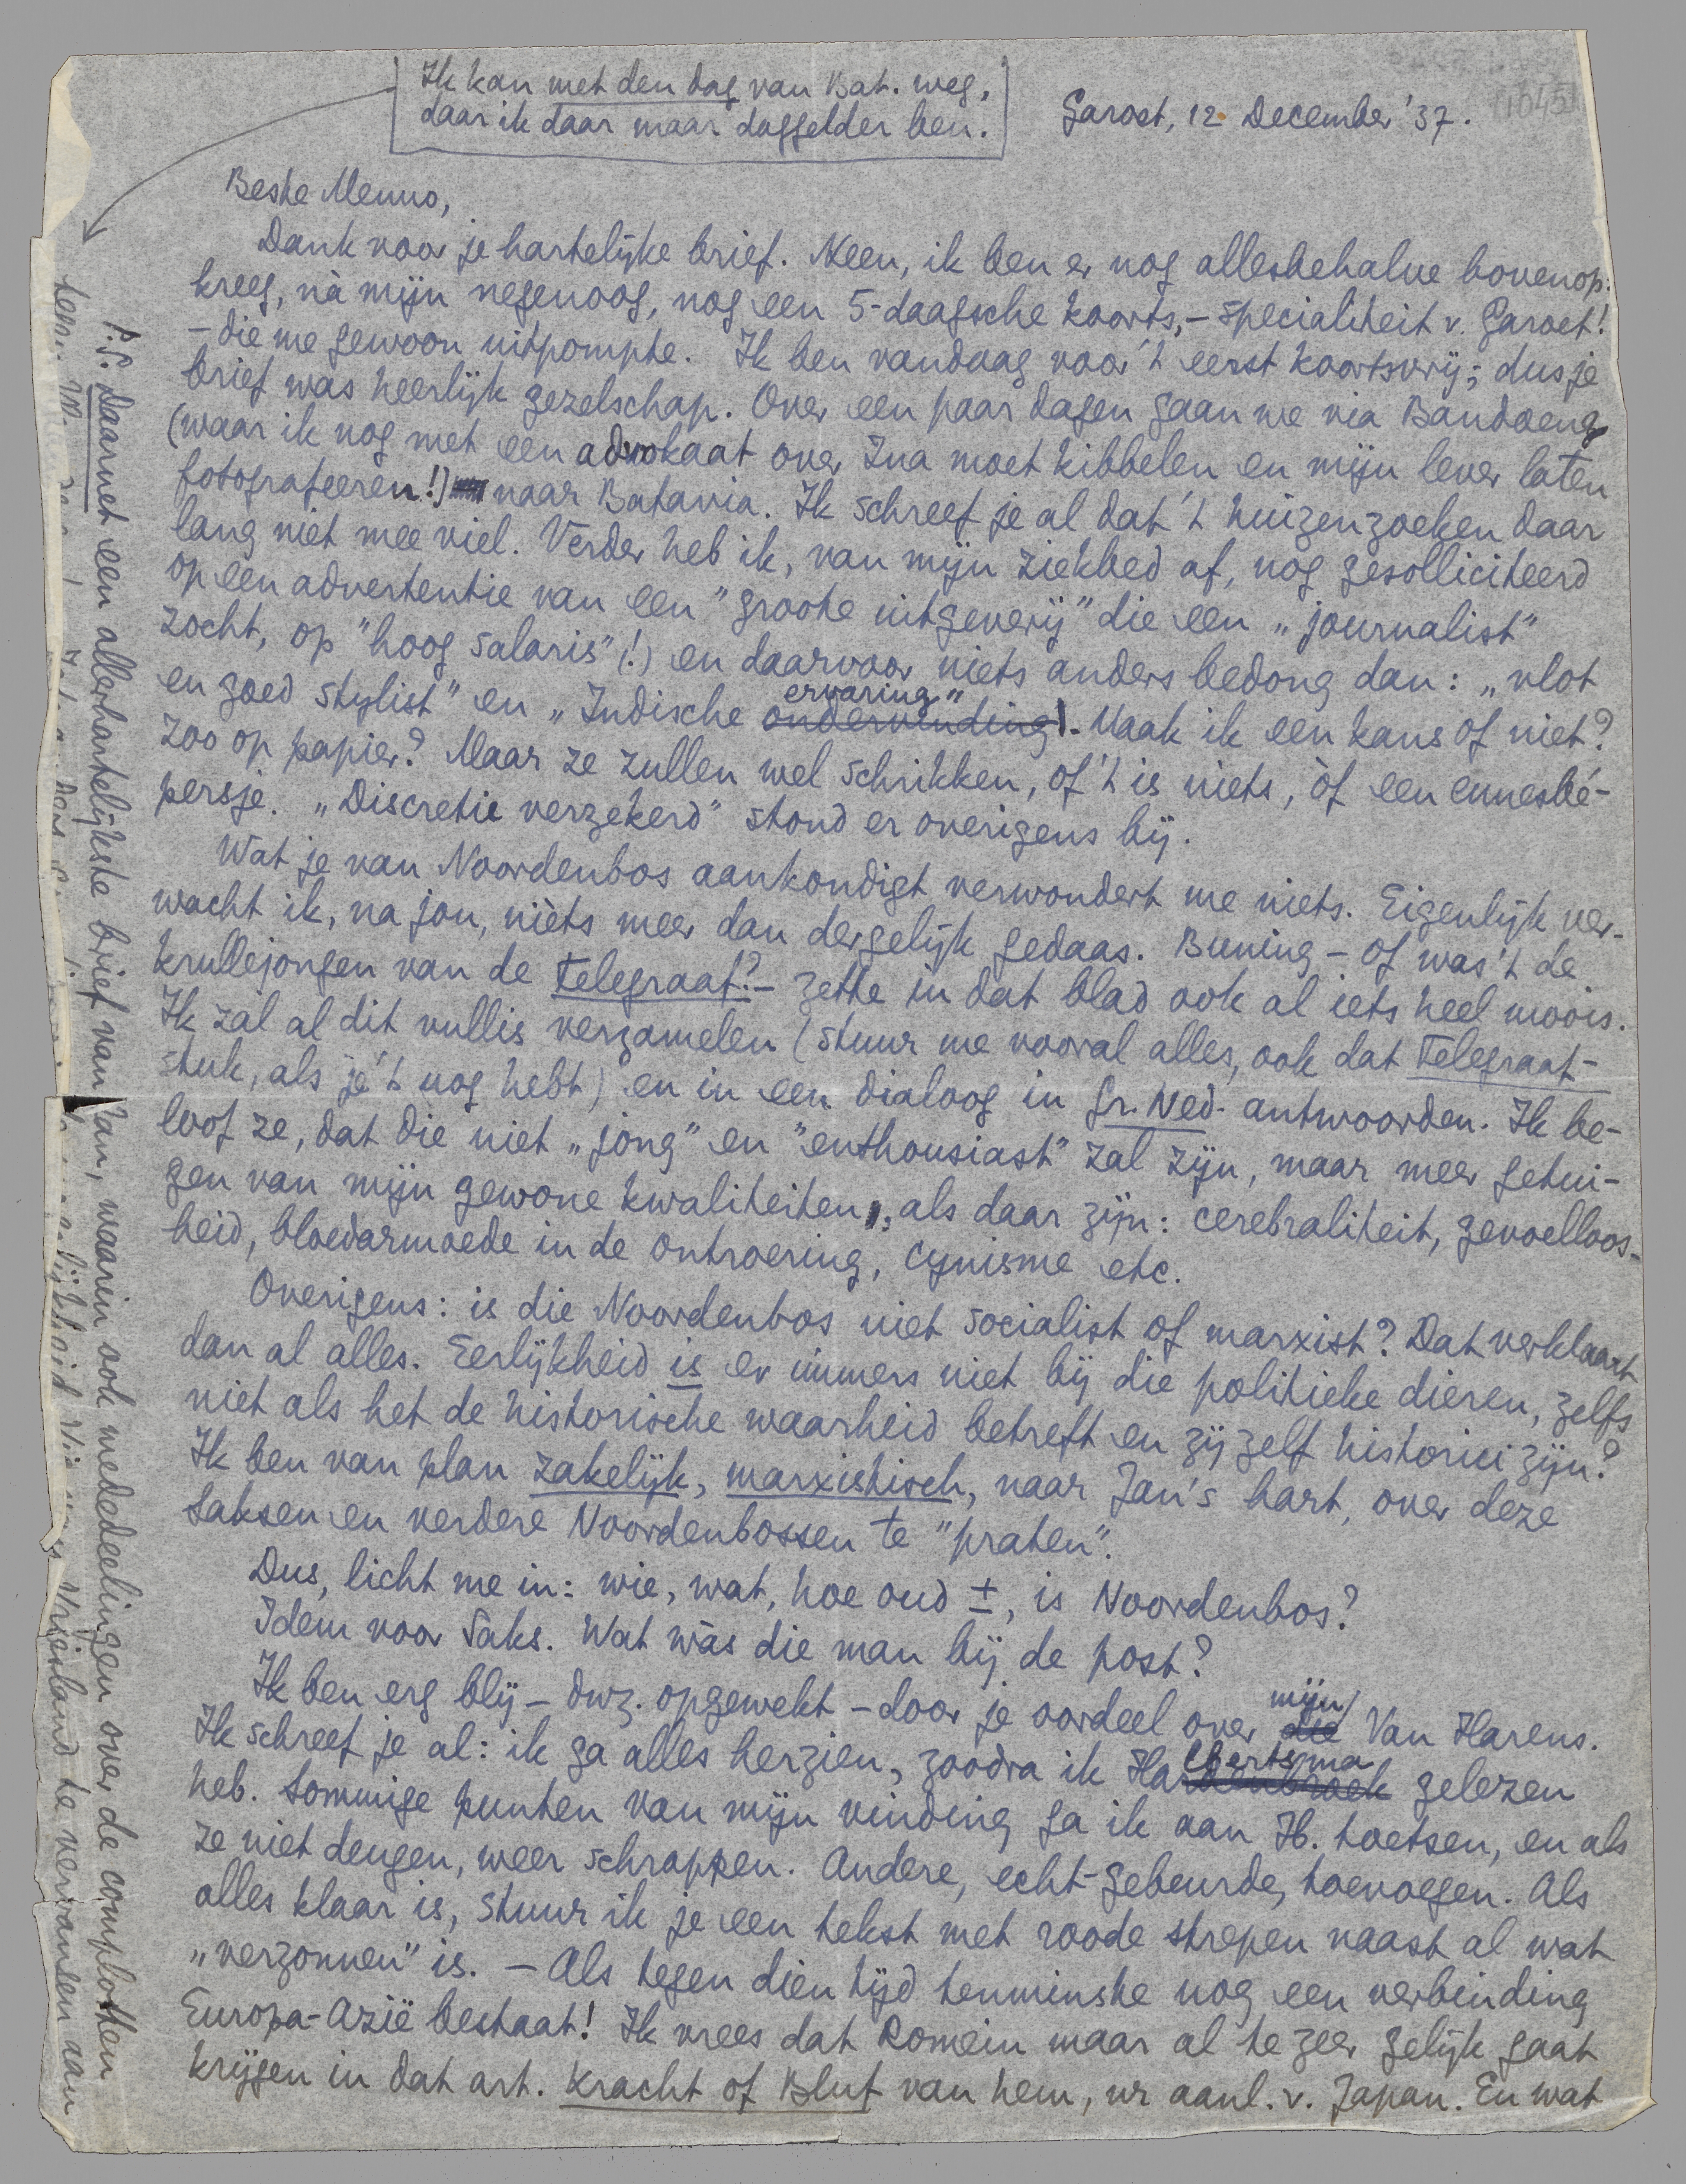 Ik kan met den dag van Bat. weg,
daar ik daar maar daggelder ben.
Garoet, 12 December '37.
Beste Menno,
Dank voor je hartelijke brief. Neen, ik ben er nog allesbehalve bovenop:
kreeg, nà mijn negenoog, nog een 5-daagsche koorts, – specialiteit v. Garoet!
– die me gewoon uitpompte. Ik ben vandaag voor 't eerst koortsvrij; dus je
brief was heerlijk gezelschap. Over een paar dagen gaan we via Bandoeng
(waar ik nog met een advokaat over Ina moet kibbelen en mijn lever laten
fotografeeren!) naar Batavia. Ik schreef je al dat 't huizenzoeken daar
lang niet mee viel. Verder heb ik, van mijn ziekbed af, nog gesolliciteerd
op een advertentie van een "groote uitgeverij" die een „journalist"
zocht, op "hoog salaris" (!) en daarvoor niets anders bedong dan: „vlot
en goed stylist" en „Indische ondervinding ervaring". Maak ik een kans of niet?
zoo op papier? Maar ze zullen wel schrikken, of 't is niets, òf een ennesbé-
persje. „Discretie verzekerd" stond er overigens bij.
Wat je van Noordenbos aankondigt verwondert me niets. Eigenlijk ver-
wacht ik, na jou, nièts meer dan dergelijk gedaas. Buning – of was 't de
krullejongen van de Telegraaf? – zette in dat blad ook al iets heel moois.
Ik zal al dit vullis verzamelen (stuur me vooral alles, ook dat Telegraaf-
stuk, als je 't nog hebt) en in een dialoog in Gr. Ned. antwoorden. Ik be-
loof ze, dat die niet „jong" en "enthousiast" zal zijn, maar meer getui-
gen van mijn gewone kwaliteiten, als daar zijn: cerebraliteit, gevoelloos-
heid, bloedarmoede in de ontroering, cynisme etc.
Overigens: is die Noordenbos niet socialist of marxist? Dat verklaart
dan al alles. Eerlijkheid is er immers niet bij die politieke dieren, zelfs
niet als het de historische waarheid betreft en zij zelf historici zijn?
Ik ben van plan zakelijk, marxistisch, naar Jan's hart, over deze
Saksen en verdere Noordenbossen te "praten".
Dus, licht me in: wie, wat, hoe oud ±, is Noordenbos?
Idem voor Saks. Wat wàs die man bij de post?
Ik ben erg blij – dwz. opgewekt – door je oordeel over die mijn Van Harens.
Ik schreef je al: ik ga alles herzien, zoodra ik Halbertsma gelezen
heb. Sommige punten van mijn vinding ga ik aan H. toetsen, en als
ze niet deugen, weer schrappen. Andere, echt-gebeurde, toevoegen. Als
alles klaar is, stuur ik je een tekst met roode strepen naast al wat
„verzonnen" is. – Als tegen dien tijd tenminste nog een verbinding
Europa-Azië bestaat! Ik vrees dat Romein maar al te zeer gelijk gaat
krijgen in dat art. Kracht of Bluf van hem, nr aanl. v. Japan. En wat
P.S. Daarnet een allerhartelijkste brief van Jan, waarin ook mededeelingen over de complotten
Vriesland te vervangen aan